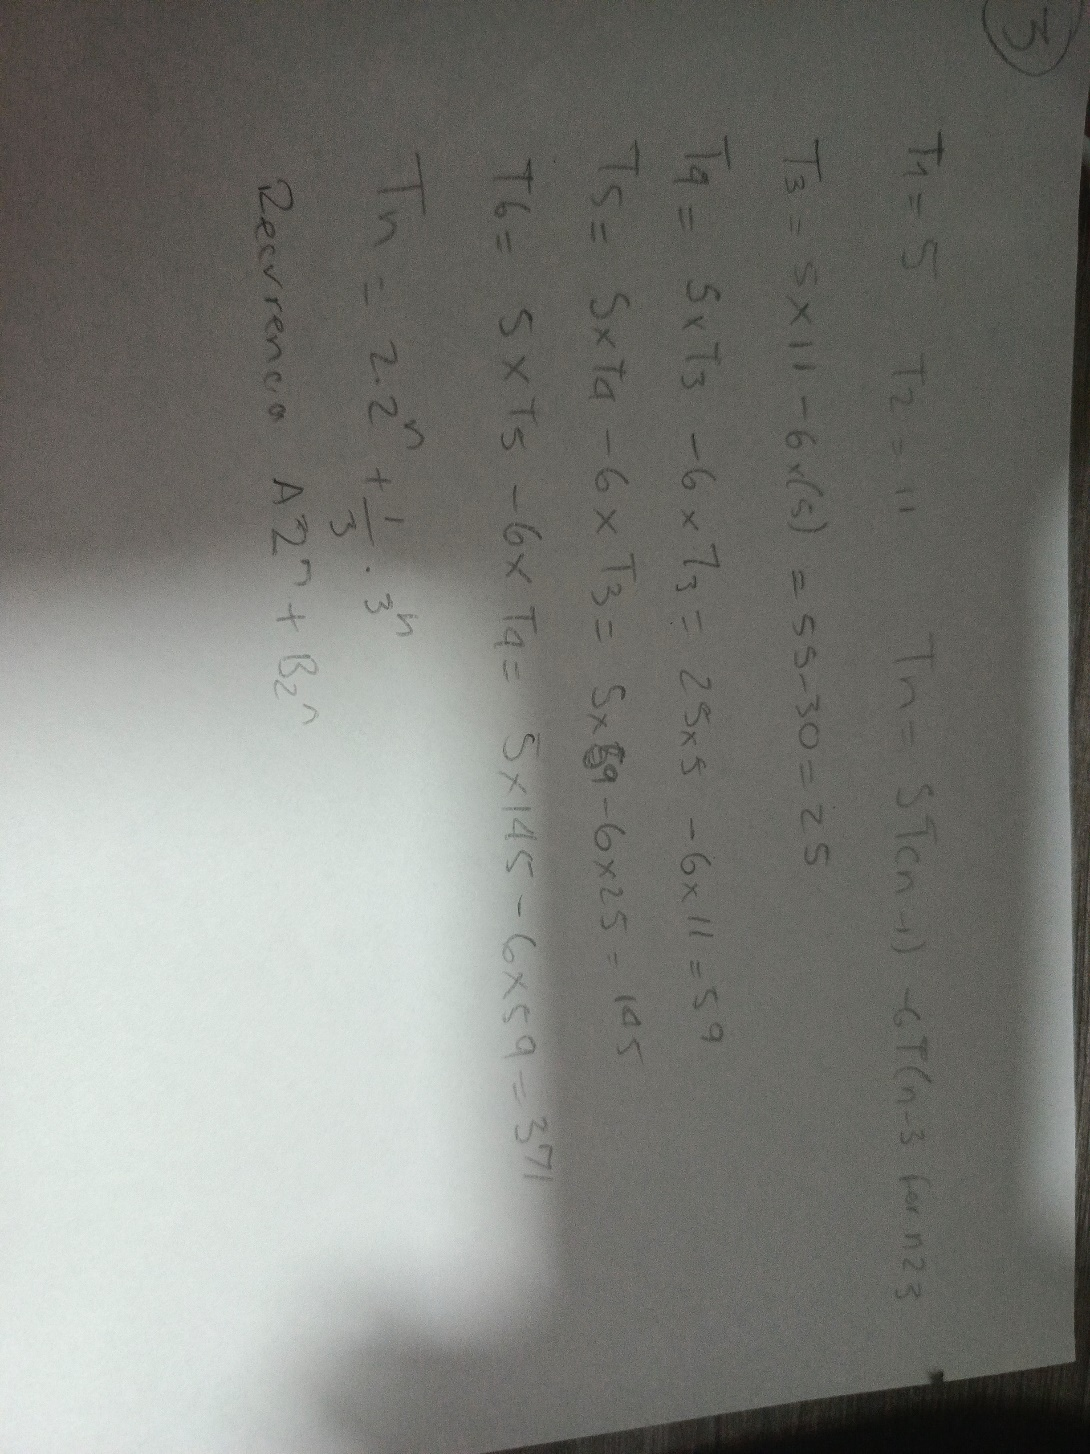 3
T1 = 5 T2 = 11 Tn = 5T(n-1) -6T(n-3 for n≥3
T3 = 5x11-6x(5) = 55-30=25
T4 = 5xT3 -6xT3= 25x5 -6x11=59
T5= 5xT4 -6xT3= 5x59-6x25= 145
T6= 5xT5 -6xT4= 5x145-6x59=371
Tn = 2.2ⁿ + 1/3 . 3ⁿ
Recurrencia A2ⁿ + B2ⁿ